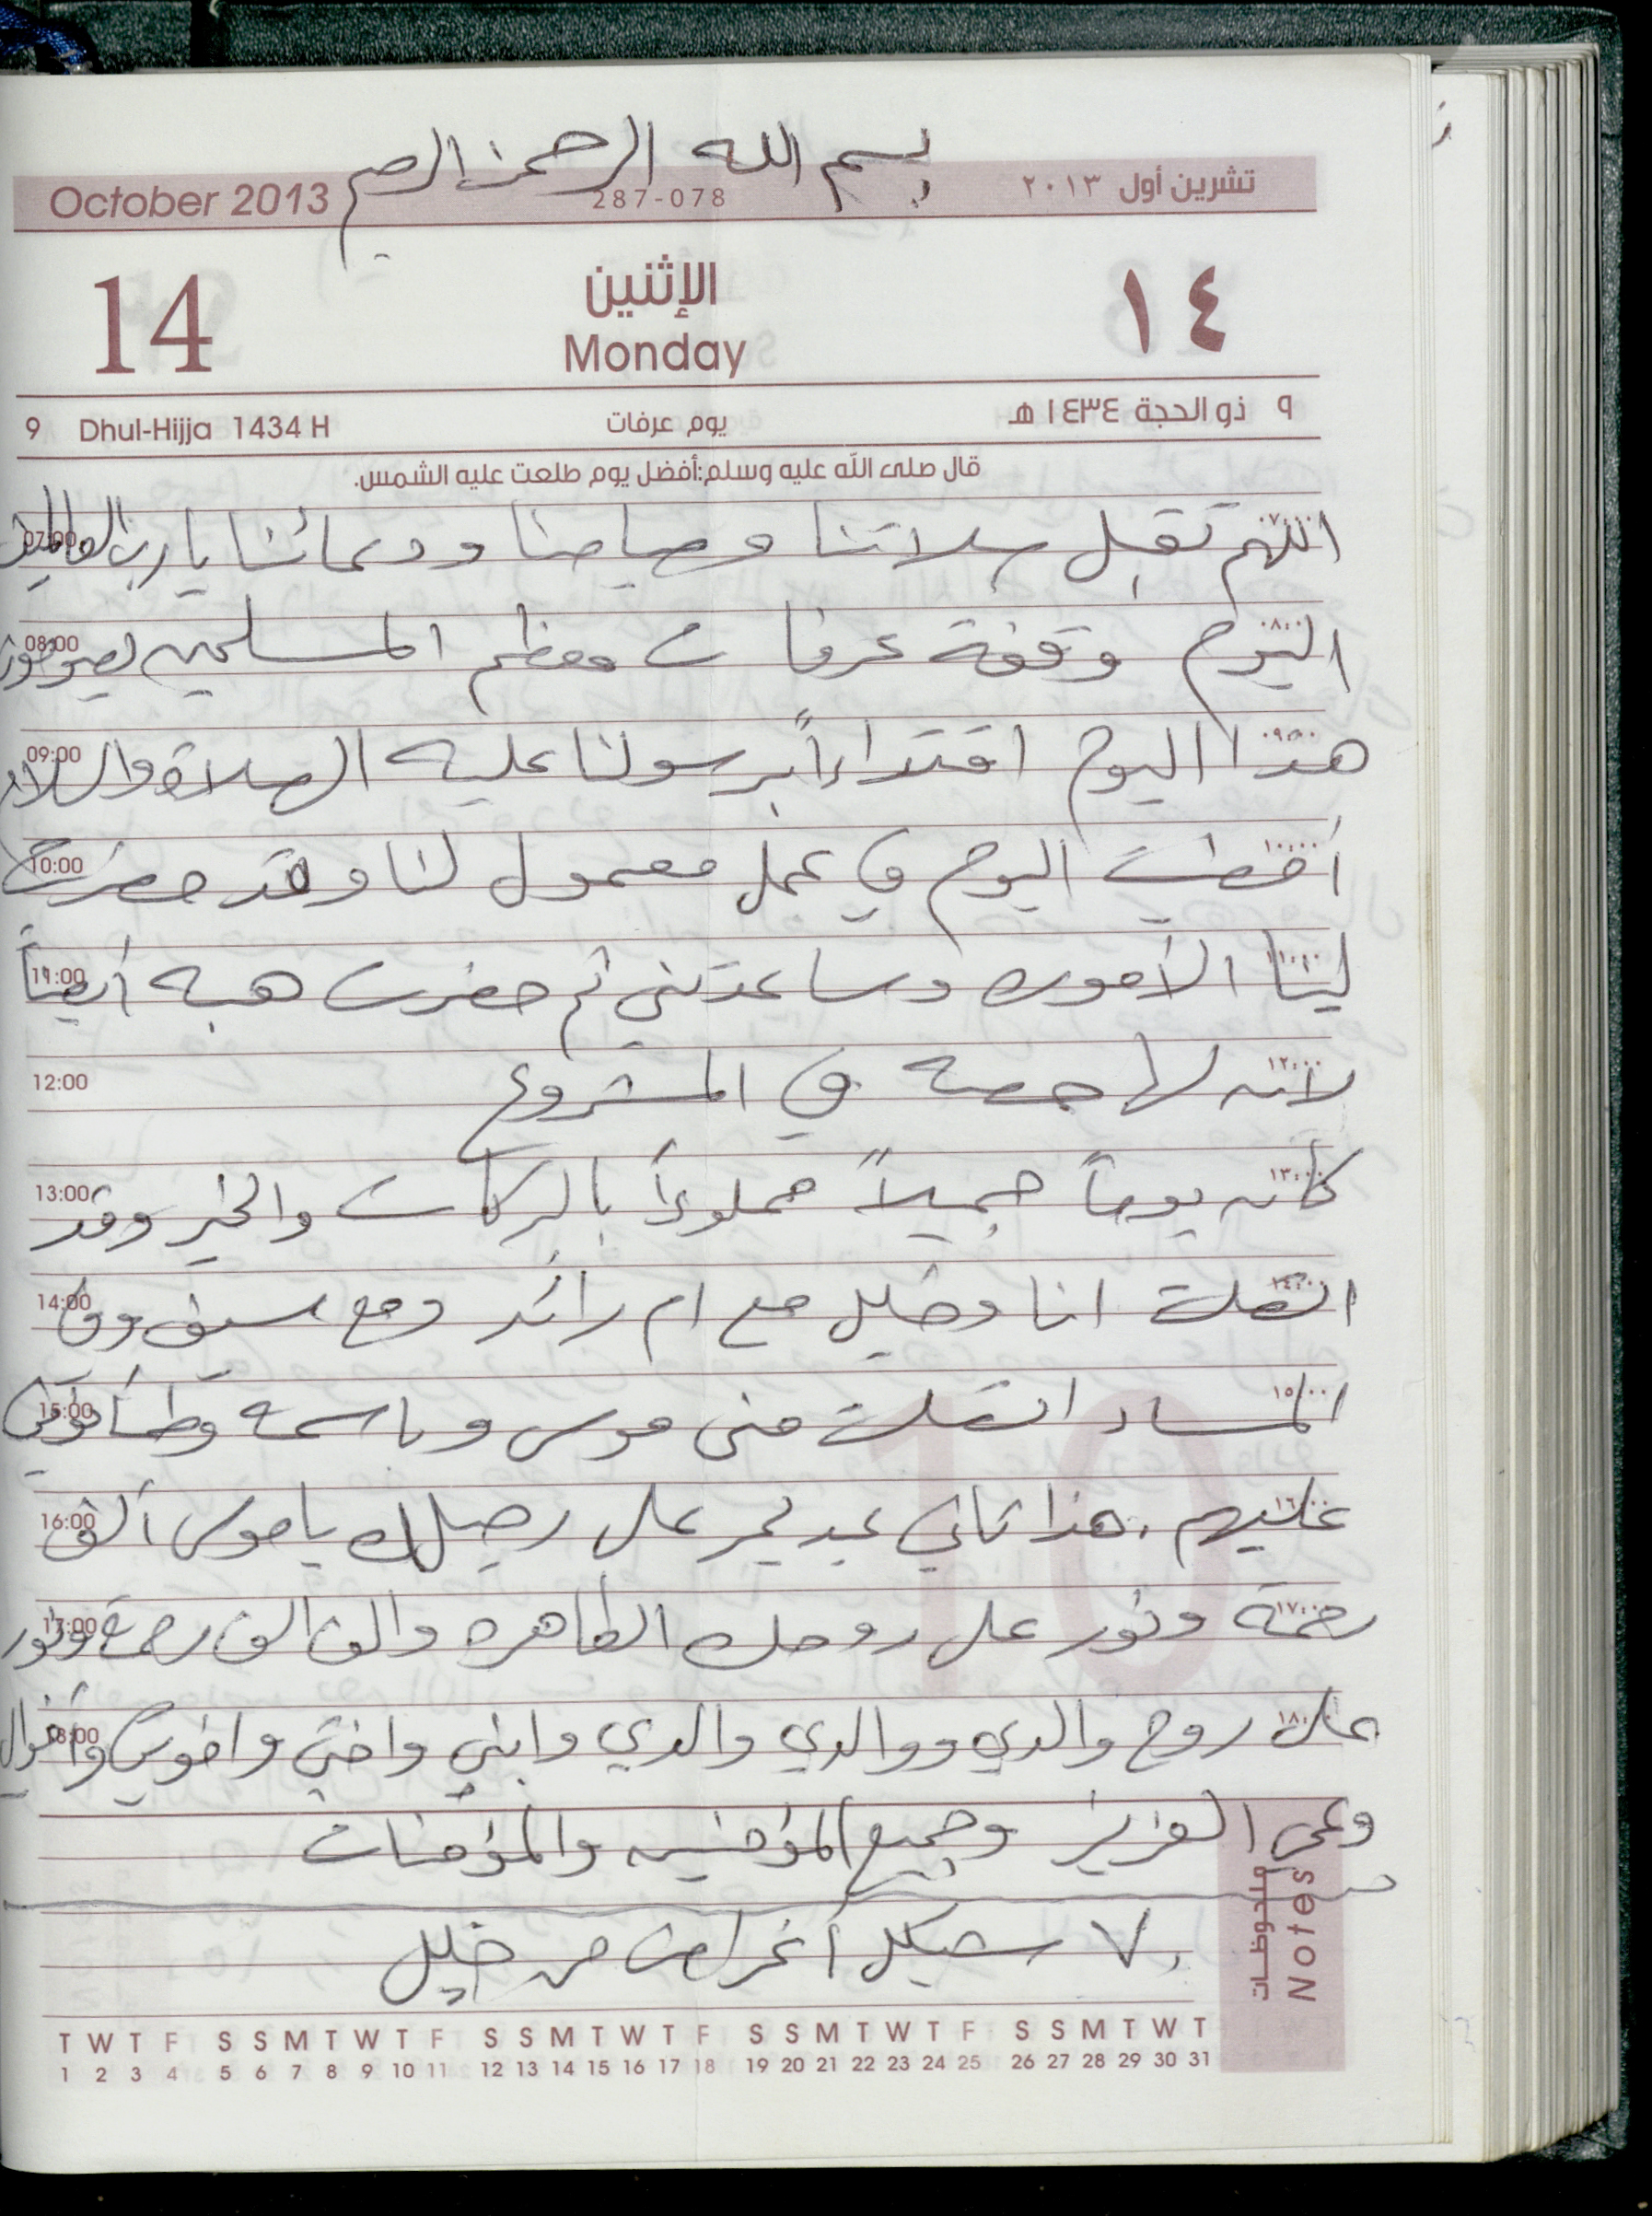 بسم الله الرحمن الرحيم
October 2013 287-078 تشرين أول ٢٠١٣
14 الإثنين ١٤
Monday
9 Dhul-Hijja 1434 H يوم عرفات ٩ ذو الحجة ١٤٣٤ هـ
قال صلى الله عليه وسلم:أفضل يوم طلعت عليه الشمس.
07:00 اللهم تقبل صلاتنا وصيامنا ودعائنا يا رب العالمين ٠٧:٠٠
08:00 اليوم وقفة عرفات معظم المسلمين يصومون ٠٨:٠٠
09:00 هذا اليوم اقتداءاً برسولنا عليه الصلاة والسلام ٠٩:٠٠
10:00 اليوم في عمل معمول لنا وقد حضرت ١٠:٠٠
11:00 لينا الأموره وساعدتني ثم حضرت هبه أيضاً ١١:٠٠
12:00 لانه لها حصه في المشروع ١٢:٠٠
13:00 كانه يوماً جميلاً مملوءاً بالبركات والخير وقد ١٣:٠٠
14:00 اتصلت انا وخليل مع ام رائد ومع سيف وفي ١٤:٠٠
15:00 المساء اتصلت منى موسى وباسمه ١٥:٠٠
16:00 عليهم . هذا ثاني عيد يمر على رحيلك يا موسى ألف ١٦:٠٠
17:00 رحمة ونور على روحك الطاهره والف الف رحمة ونور ١٧:٠٠
18:00 على روح والدي ووالدي والدي وابني واختي واخوتي وأخوالي ١٨:٠٠
وعمي العزيز وجميع المؤمنين والمؤمنات
٧٠ شيكل أغراض من خليل
ملحوظات Notes
T W T F S S M T W T F S S M T W T F S S M T W T F S S M T W T
1 2 3 4 5 6 7 8 9 10 11 12 13 14 15 16 17 18 19 20 21 22 23 24 25 26 27 28 29 30 31